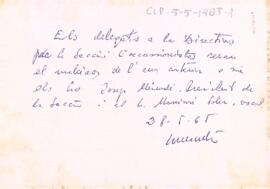 CLP-5-5-1965-1
Els delegats a la Directiva
de la Secció Excursionista seran
el mateixos de l'any anterior o sia
els Srs Jorge Minudi, President de
la Secció i el S. Mariano Soler, vocal
28-5-65